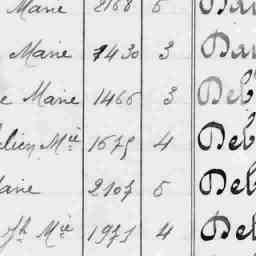 Marie 2168 6
Marie 7430 3 Dau
e Marie 1466 3 Deb
Mie 1675 4 Deb
arie 2107 5 Deb
Jh Mie 1971 4 Deb